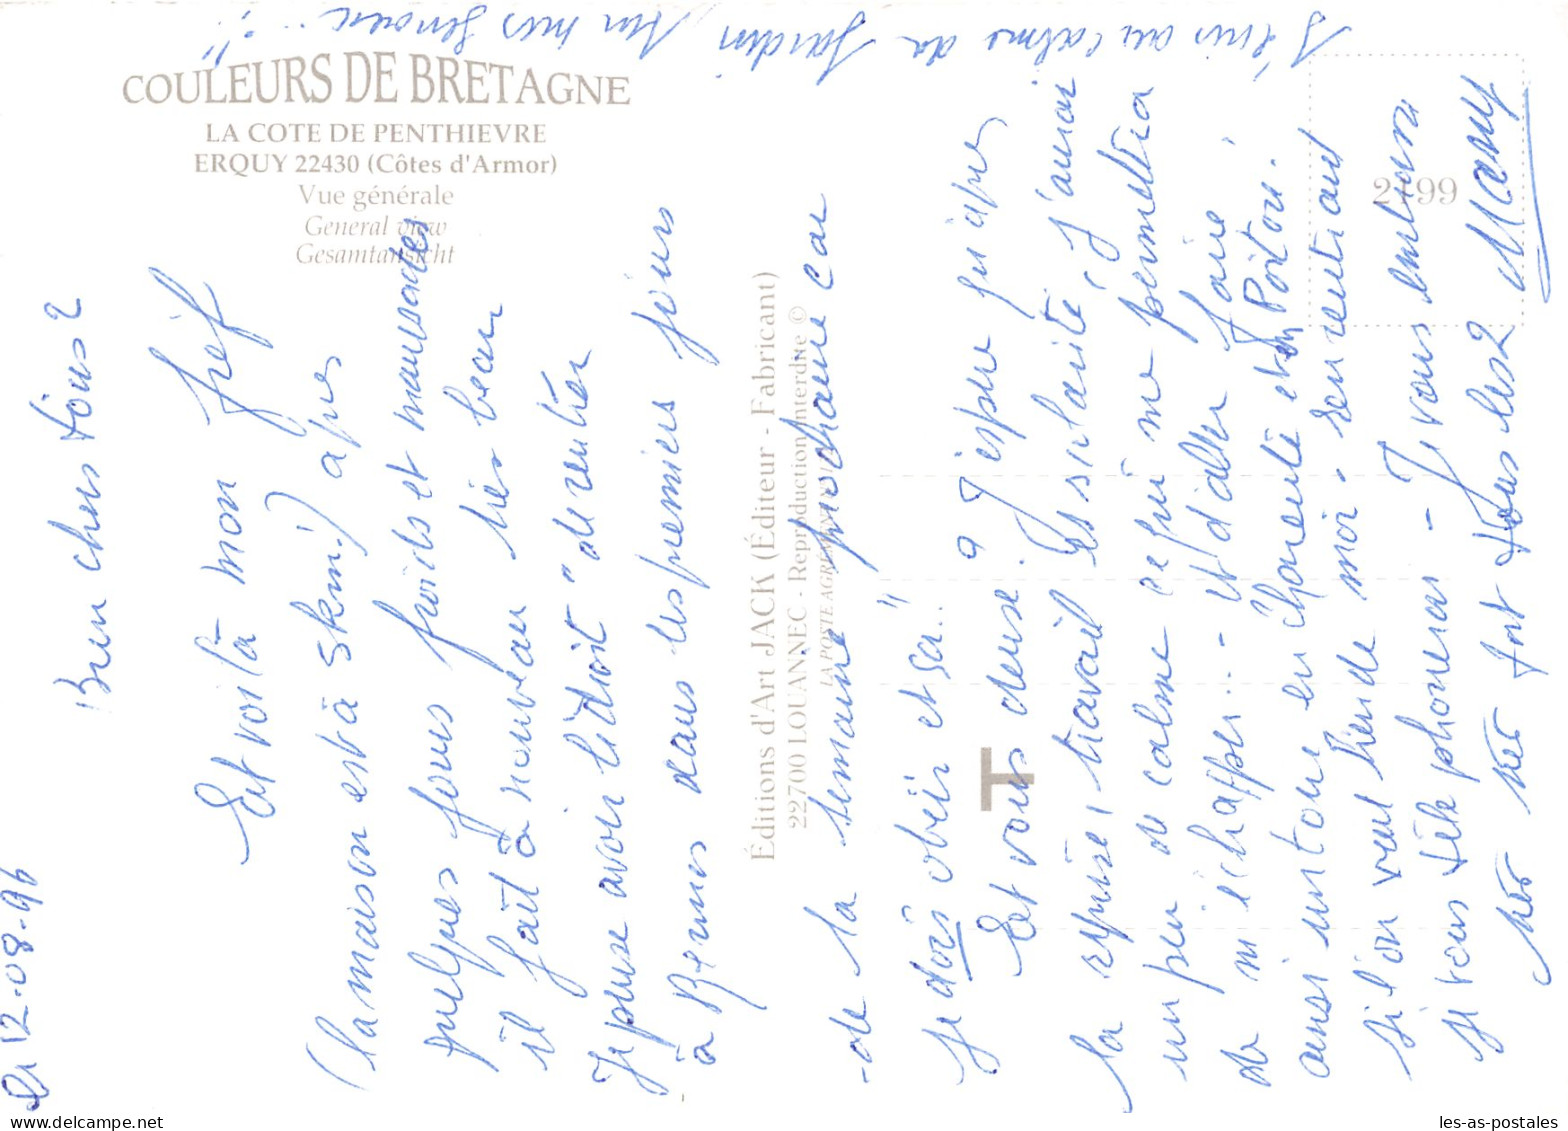 COULEURS DE BRETAGNE
LA COTE DE PENTHIEVRE
ERQUY 22430 (Côtes d'Armor)
Vue générale
General view
Gesamtansicht
Éditions d'Art JACK (Éditeur - Fabricant)
22700 LOUANNEC - Reproduction interdite ©
LA POSTE AGRÉMENT
T
2199
Le 12-08-96
Bien chers tous 2
Et voilà mon fief
(la maison est à 3km!) après
quelques jours froids et maussades
il fait à nouveau très beau
Je pense avoir le droit "de rentrer
à Rennes dans les premiers jours
- de la semaine prochaine car
je dois obéir et sa.."
Et vous deux? J'espère qu'après
la reprise, travail et scolarité, j'aurai
un peu de calme ce qui me permettra
de m'échapper.. - et d'aller faire
ainsi un tour en Charente et en Poitou.
si l'on veut bien de moi. en rentrant
je vous téléphonerai - Je vous embrasse
très très fort tous les 2 Mamy
J'écris au calme du jardin sur mes genoux...!!
les-as-postales